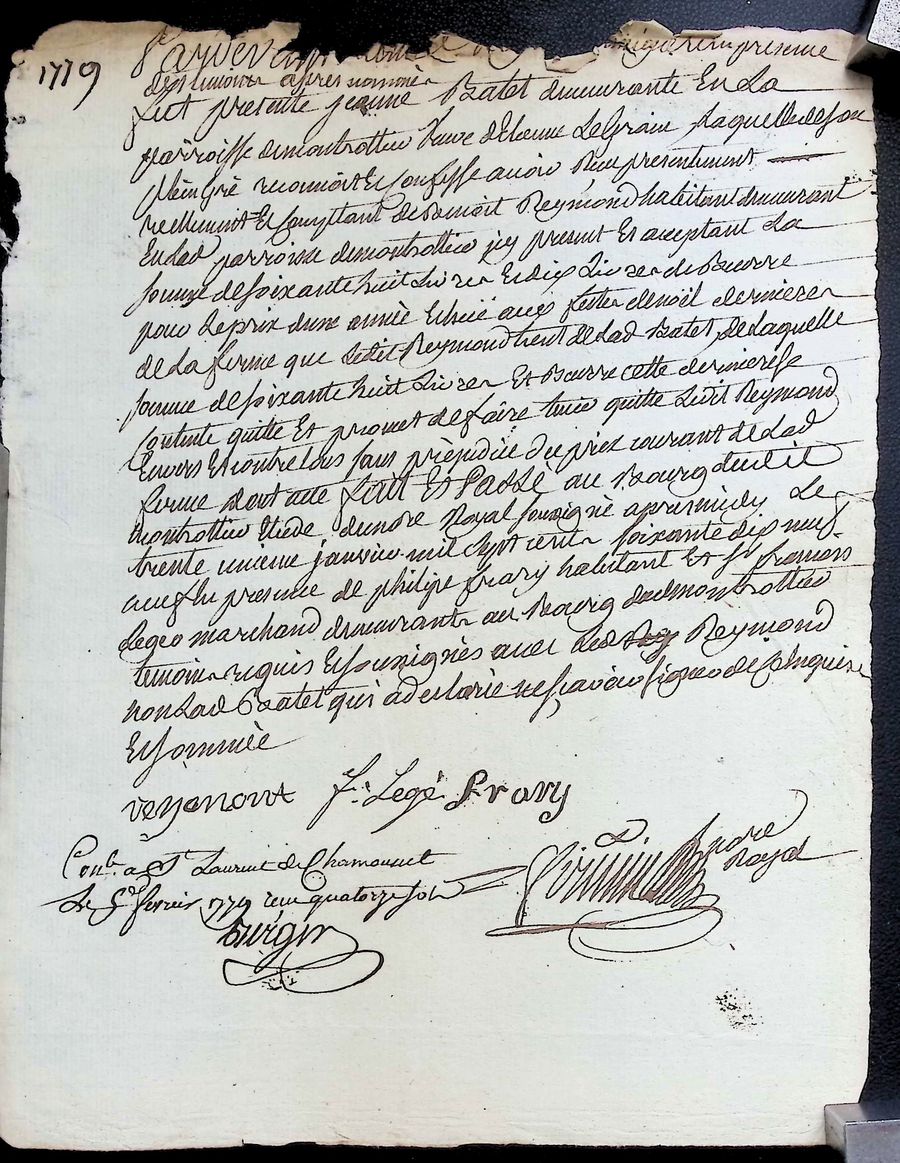 1779
Pardevant soussigné et en presence
des temoins apres nommés
fut presente jeanne Batet demeurante En La
parroisse demontrottier Veuve detienne LeGrain Laquelle de son
plein gré reconnoit Et Confesse avoir Recu presentement
reellement Et Comptant de Benoit Reymond habitant demeurant
En lad parroisse demontrottier icy present Et aceptant La
somme de soixante huit Livres Et dix Livres de Beurre
pour Le prix dune année Echuë aux fettes denoël dernieres
de La ferme que Ledit Reymond tient de Lad Batet, de Laquelle
somme de soixante huit Livres Et Beurre cette derniere se
Contente quitte Et promet de faire tenir quitte Ledit Reymond
Envers Et contre tous sans prejudice du prix courant de Lad
ferme dont acte fait Et Passé au Bourg dudit
montrottier Etude dunore Royal soussigné apres midy Le
trente unieme janvier mil sept cent soixante dix neuf
En presence de philipe frary habitant Et Sr françois
Legeo marchand demeurants au Bourg dudmontrottier
temoins requis Et soussignés avec Led Reymond
non Lad Batet qui a declaré ne sçavoir signer de ce Enquise
Et sommée
reymont fs Legé Frary
Conlé a St Laurent de Chamousset
Le 5e fevrier 1779 recu quatorze sols
nore
Royal